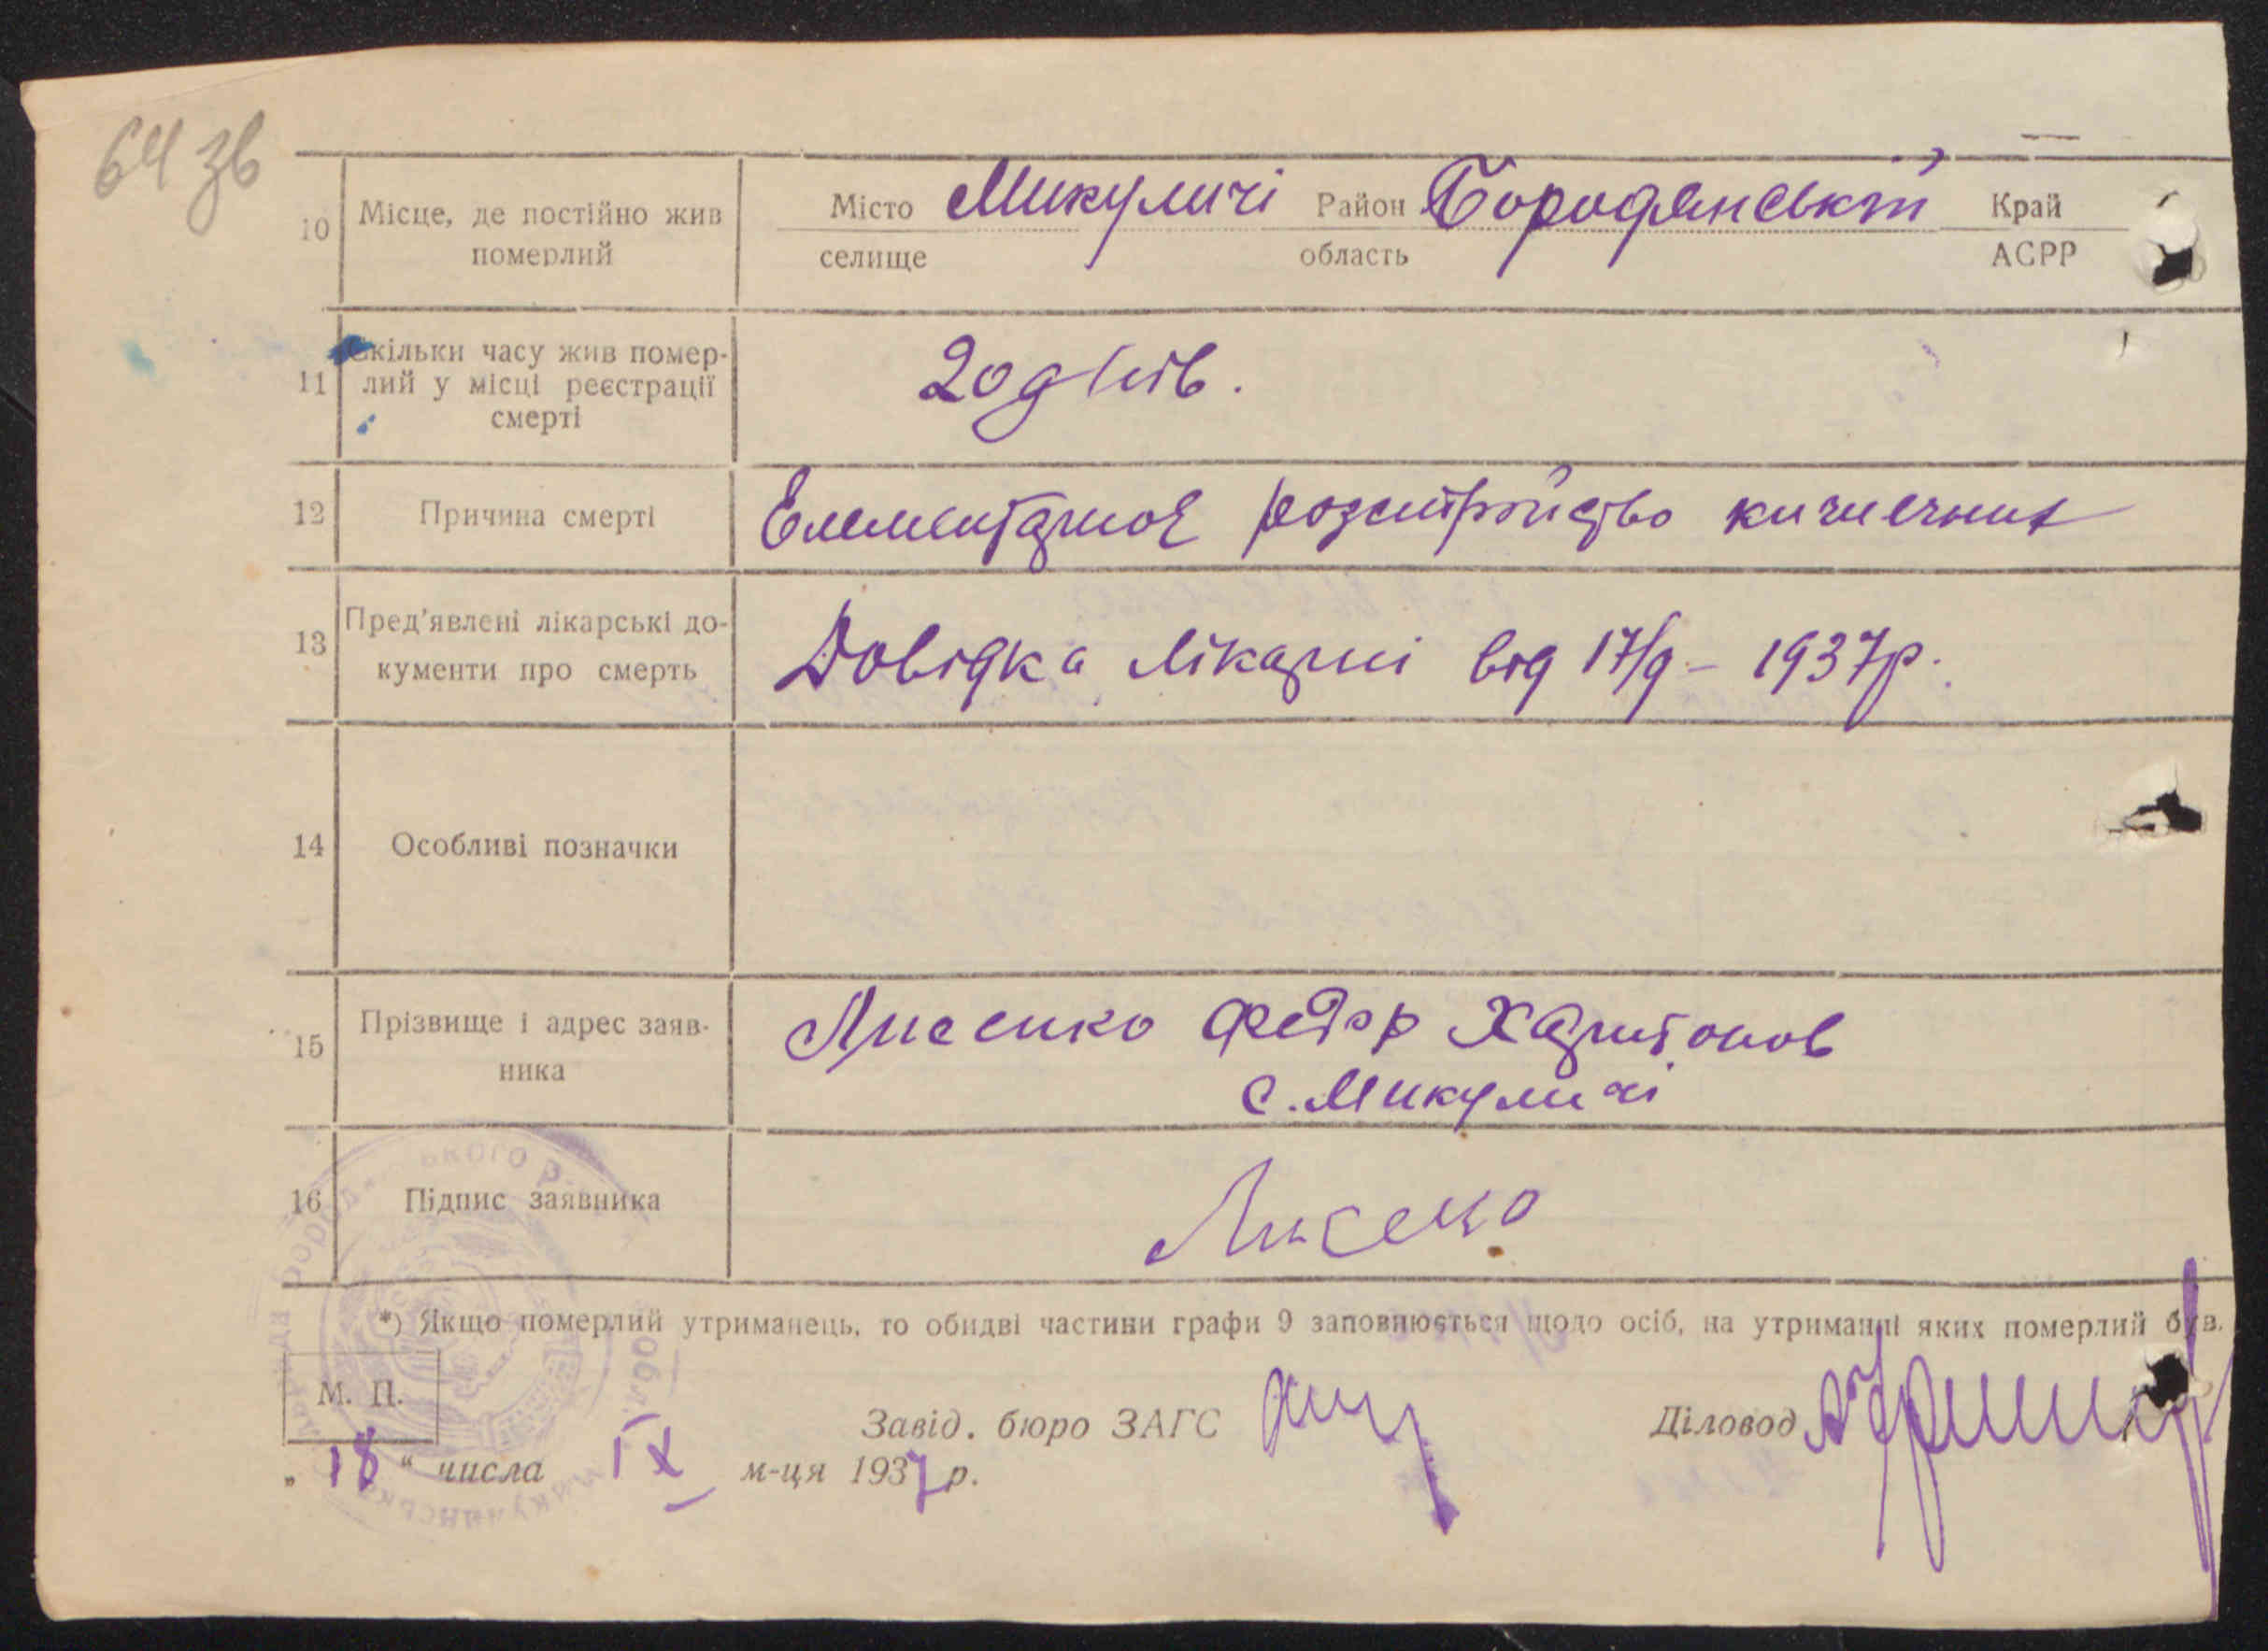 64 зв
10 Місце, де постійно жив померлий Місто селище Микуличі Район область Бородянський Край АСРР
11 Скільки часу жив померлий у місці реєстрації смерті 20 днів.
12 Причина смерті Елементарное розстройство кичечних
13 Пред'явлені лікарські документи про смерть Довідка лікарні від 17/9 – 1937р.
14 Особливі позначки
15 Прізвище і адрес заявника Лисенко Федор Харитонов
с. Микуличі
16 Підпис заявника Лисенко
*) Якщо померлий утриманець, то обидві частини графи 9 заповнюється щодо осіб, на утриманні яких померлий був.
М. П.
Завід. бюро ЗАГС Діловод
„18“ числа IX м-ця 1937 р.